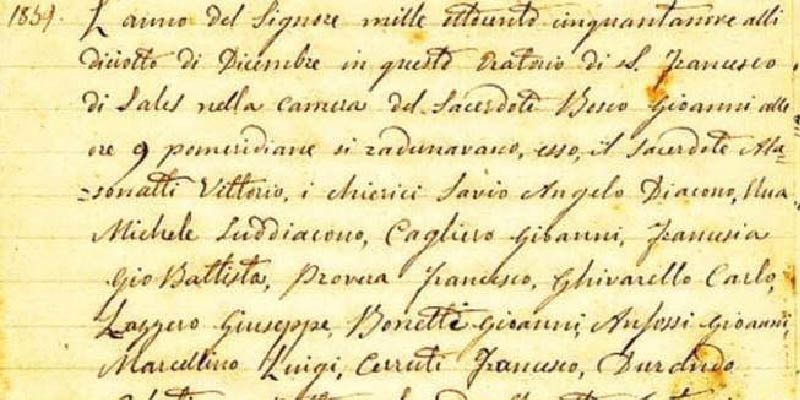 1859. L'anno del Signore mille ottocento cinquantanove alli
diciotto di Dicembre in questo Oratorio di S. Francesco
di Sales nella camera del Sacerdote Bosco Gioanni alle
ore 9 pomeridiane si radunavano, esso, il Sacerdote Ala=
=sonatti Vittorio, i chierici Savio Angelo Diacono, Rua
Michele Suddiacono, Cagliero Gioanni, Francesia
Gio Battista, Provera Francesco, Ghivarello Carlo,
Lazzero Giuseppe, Bonetti Gioanni, Anfossi Gioanni,
Marcellino Luigi, Cerruti Francesco, Durando